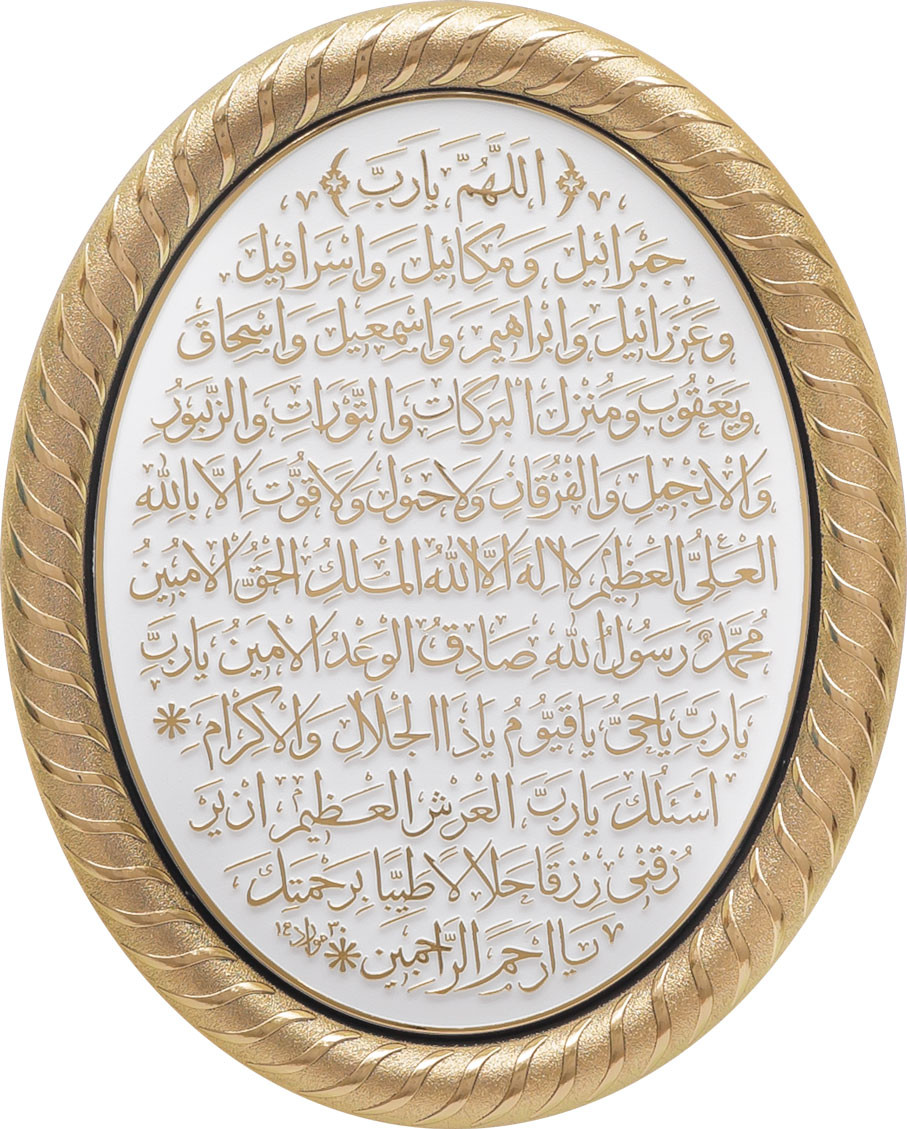 اَللّٰهُمَّ يَارَبِّ
جَبْرَائِيلَ وَمِكَائِيلَ وَاِسْرَافِيلَ
وَعَزْرَائِيلَ وَاِبْرَاهِيمَ وَاِسْمٰعِيلَ وَاِسْحَاقَ
وَيَعْقُوبَ وَمُنْزِلَ الْبَرَكَاتِ وَالتَّوْرَاتِ وَالزَّبُورِ
وَالْاِنْجِيلِ وَالْفُرْقَانِ وَلَاحَوْلَ وَلَاقُوَّتَ اِلَّا بِاللّٰهِ
الْعَلِىِّ الْعَظِيمِ لَااِلٰهَ اِلَّااللّٰهُ الْمَلِكُ الْحَقُّ الْامُبِينُ
مُحَمَّدٌ رَسُولُ اللّٰهِ صَادِقُ الْوَعْدُ الْاَمِينَ يَارَبِّ
يَارَبِّ يَاحَىُّ يَاقَيُّومُ يَاذَاالْجَلَالِ وَالْاِكْرَامِ *
اَسْئَلُكَ يَارَبَّ الْعَرْشِ الْعَظِيمِ اَنْ يَرْ
زُقَنِى رِزْقًا حَلَالًا طَيِّبًا بِرَحْمَتِكَ
يَااَرْحَمَ الرَّاحِمِينَ *